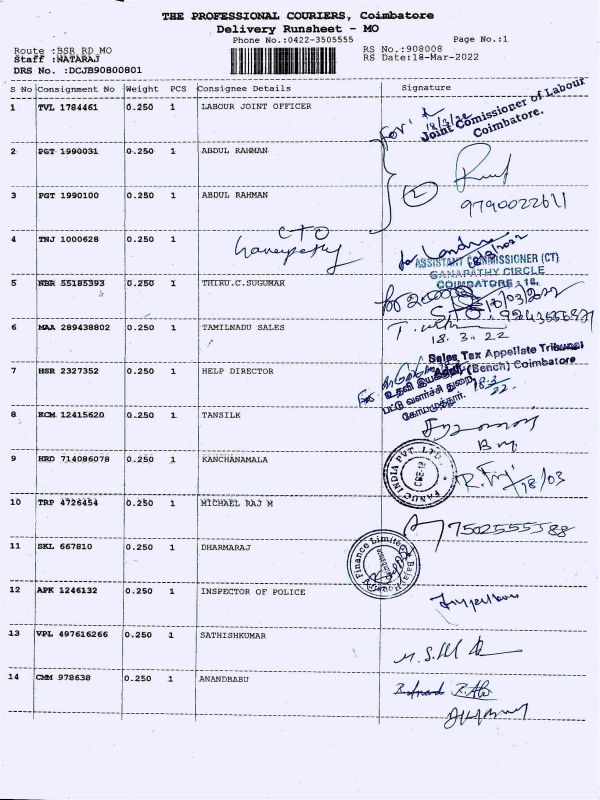 THE PROFESSIONAL COURIERS, Coimbatore
Delivery Runsheet - MO
Phone No.:0422-3505555
Page No.:1
Route :BSR RD MO
RS No.:908008
Staff :NATARAJ
RS Date:18-Mar-2022
DRS No. :DCJB90800801
S No Consignment No Weight PCS Consignee Details Signature
1 TVL 1784461 0.250 1 LABOUR JOINT OFFICER
For 18/3/22
Joint Comissioner of Labour
Coimbatore.
2 PGT 1990031 0.250 1 ABDUL RAHMAN
3 PGT 1990100 0.250 1 ABDUL RAHMAN
2
9790022611
CTO
4 TNJ 1000628 0.250 1
ASSISTANT COMMISSIONER (CT)
GANAPATHY CIRCLE
COIMBATORE - 18.
5 NBR 55185393 0.250 1 THIRU.C.SUGUMAR
6 MAA 289438802 0.250 1 TAMILNADU SALES
18.3.22
Sales Tax Appellate Tribunal
(Bench) Coimbatore
7 HSR 2327352 0.250 1 HELP DIRECTOR
உதவி இயக்குநர்
பட்டு வளர்ச்சி துறை
கோயமுத்தூர்.
8 KCM 12415620 0.250 1 TANSILK
9 HRD 714086078 0.250 1 KANCHANAMALA
FANUC INDIA PVT. LTD.
CBE-18
18/03
10 TRP 4726454 0.250 1 MICHAEL RAJ M
7502555588
11 SKL 667810 0.250 1 DHARMARAJ
Bajaj Housing Finance Limited
12 APK 1246132 0.250 1 INSPECTOR OF POLICE
13 VPL 497616266 0.250 1 SATHISHKUMAR
14 CMM 978638 0.250 1 ANANDBABU